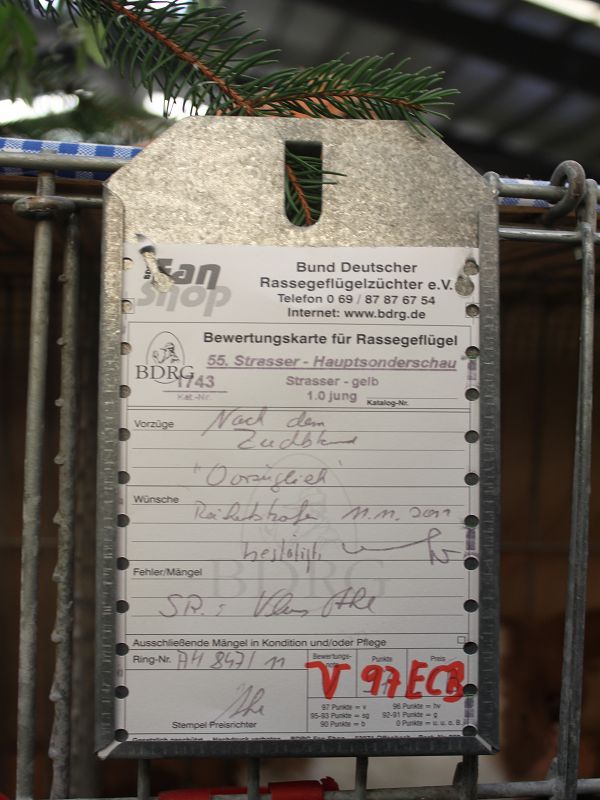 Fan
Shop
Bund Deutscher
Rassegeflügelzüchter e.V.
Telefon 0 69 / 87 87 67 54
Internet: www.bdrg.de
BDRG
Bewertungskarte für Rassegeflügel
55. Strasser - Hauptsonderschau
1743
Strasser - gelb
Kat.-Nr.
1.0 jung
Katalog-Nr.
Vorzüge
Nach dem
"Vorzüglich"
Wünsche
11.11.2011
bestätigt
BDRG
Fehler/Mängel
SR.:
Ausschließende Mängel in Kondition und/oder Pflege
Ring-Nr. AH 847/11
Bewertungs-
note
Punkte
Preis
V 97 ECB
97 Punkte = v
96 Punkte = hv
95-93 Punkte = sg
92-91 Punkte = g
90 Punkte = b
0 Punkte = u. u. o. B.
Stempel Preisrichter